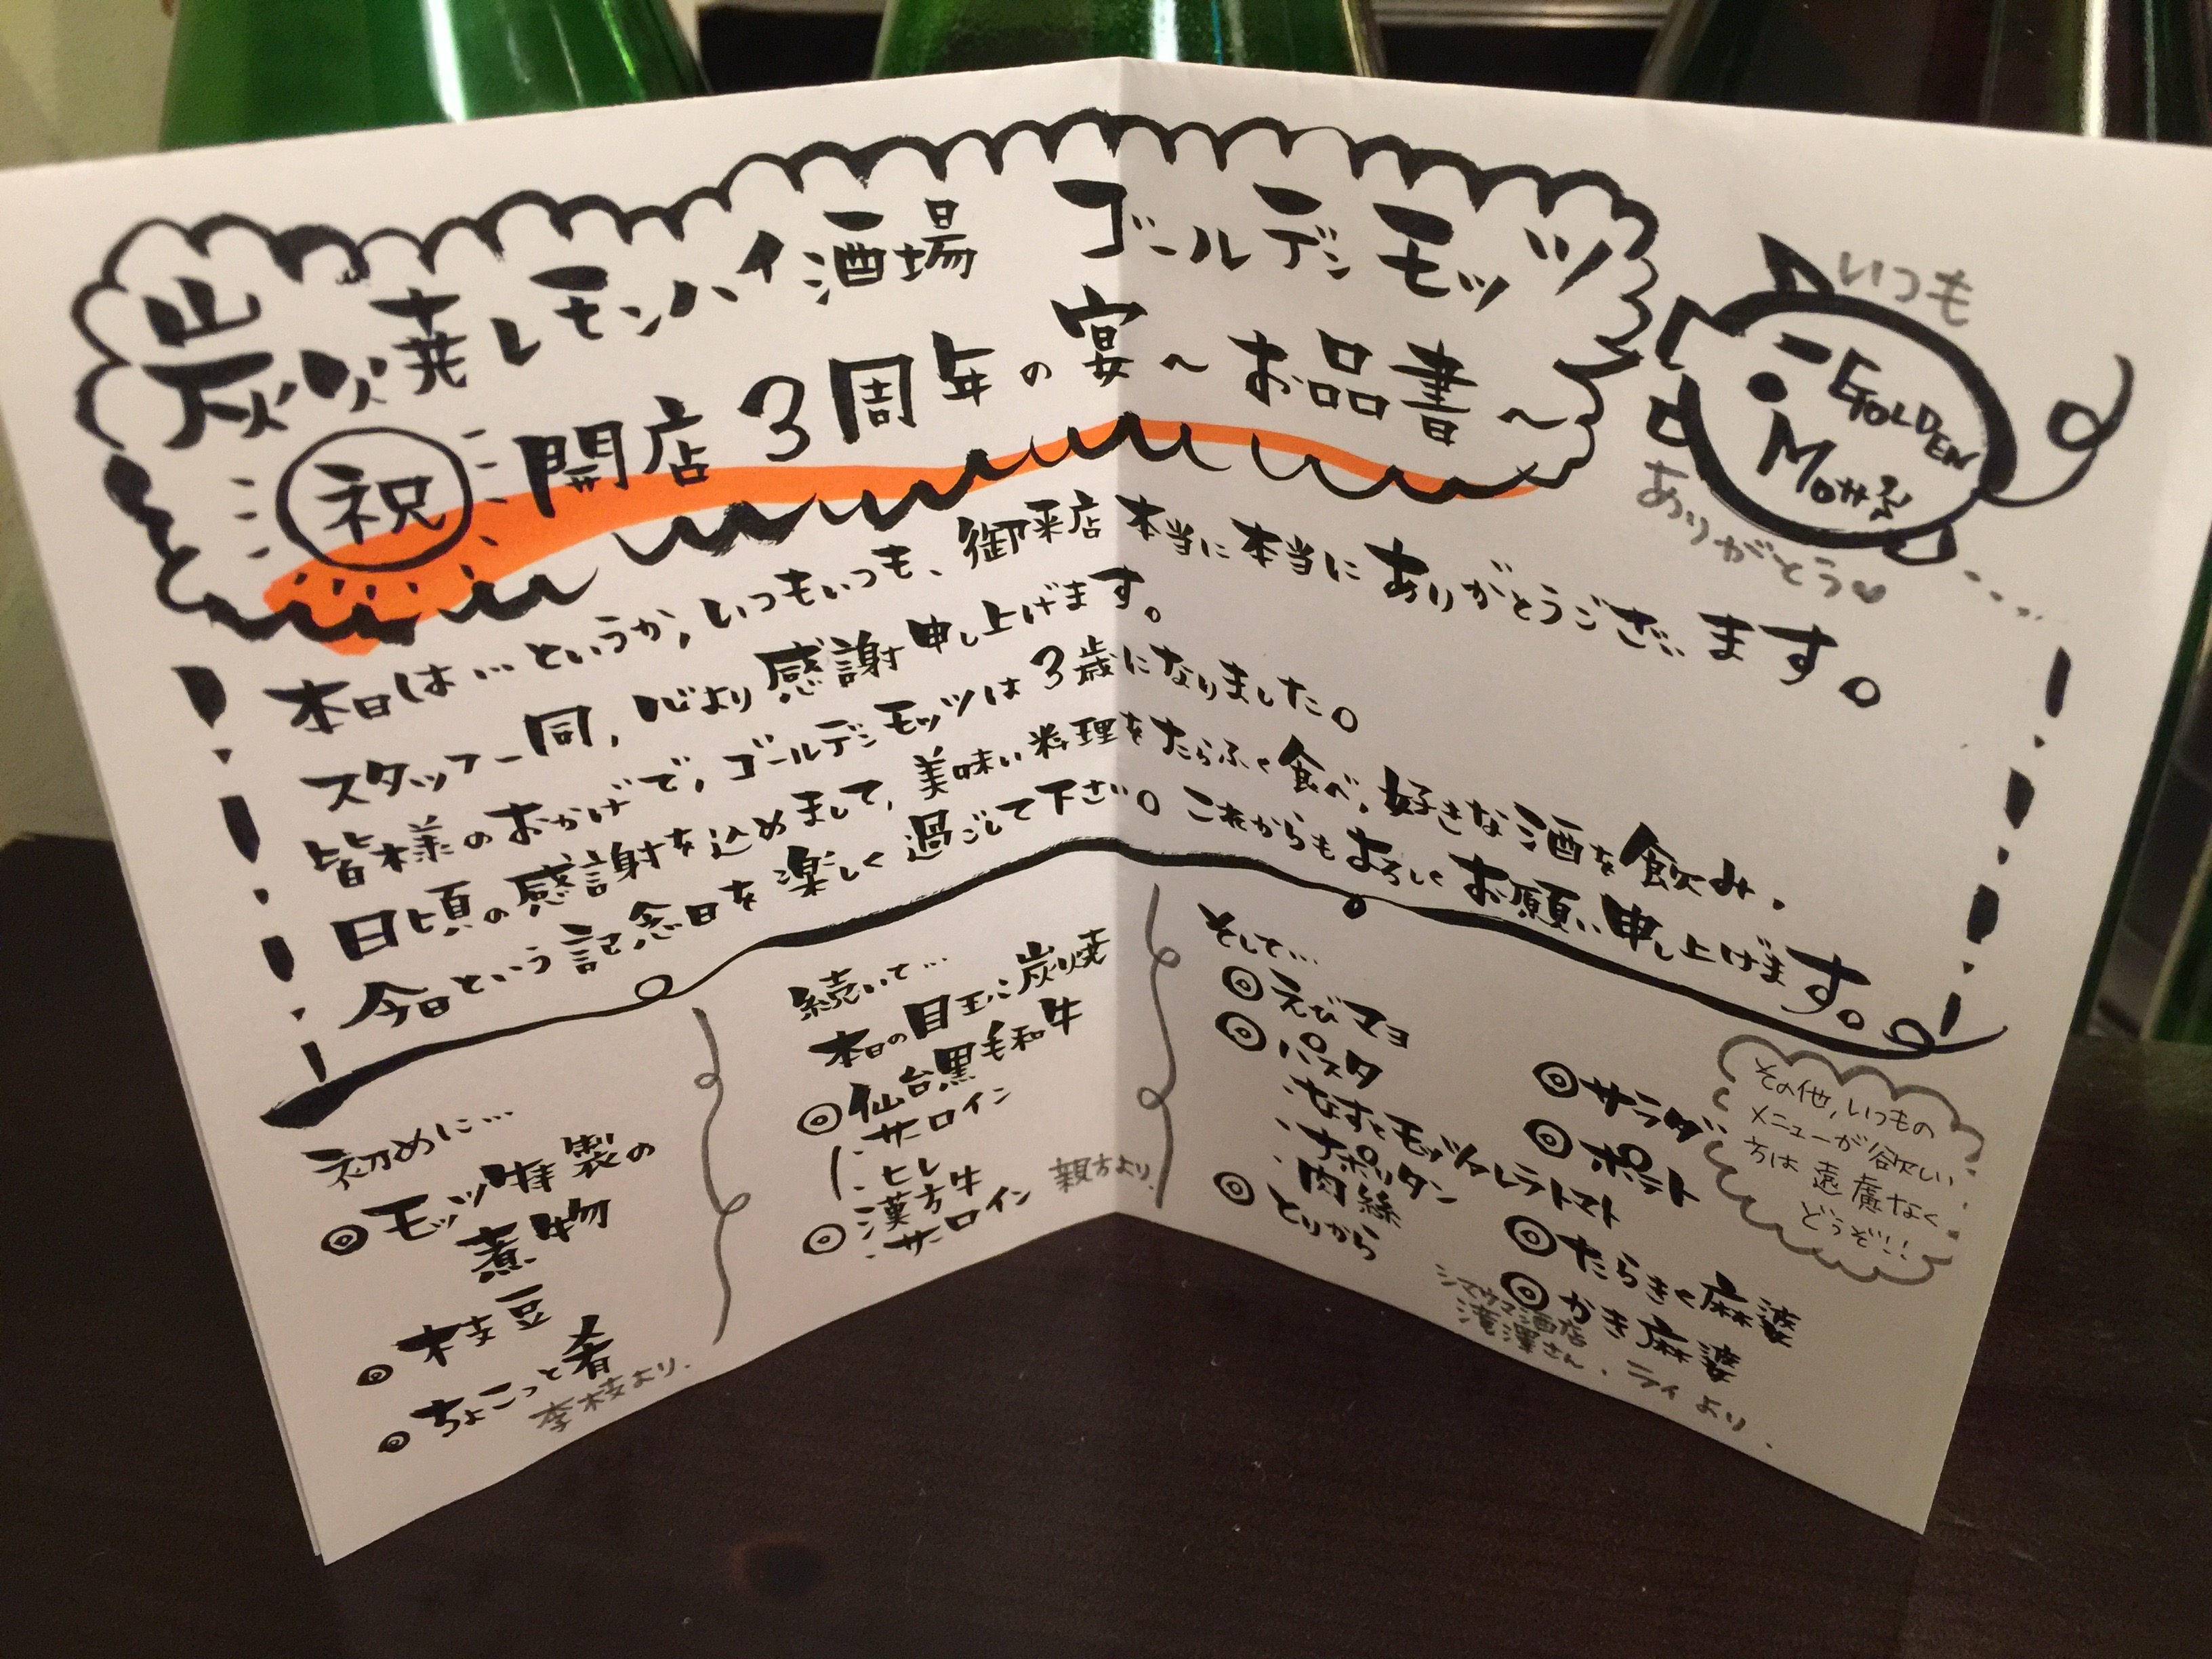 炭火焼レモンハイ酒場 ゴールデンモッツ
祝 開店3周年の宴～お品書～
いつも
GOLDEN
Mott's
ありがとう♥
本日は…というか、いつもいつも、御来店本当に本当にありがとうございます。
スタッフ一同、心より感謝申し上げます。
皆様のおかげで、ゴールデンモッツは3歳になりました。
日頃の感謝を込めまして、美味い料理をたらふく食べ、好きな酒を飲み、
今日という記念日を楽しく過ごして下さい。これからもよろしくお願い申し上げます。
初めに…
◎モッツ特製の
煮物
◎枝豆
◎ちょこっと肴
李枝より.
続いて…
本日の目玉!炭火焼
◎仙台黒毛和牛
・サーロイン
・ヒレ
◎漢方牛
・サーロイン
親方より.
そして…
◎えびマヨ
◎パスタ
・なすとモッツァレラトマト
・ナポリタン
・肉絲
◎とりから
◎サラダ
◎ポテト
◎たらきく麻婆
◎かき麻婆
シマウマ酒店
滝澤さん、ライより.
その他、いつもの
メニューが欲しい
方は遠慮なく
どうぞ!!